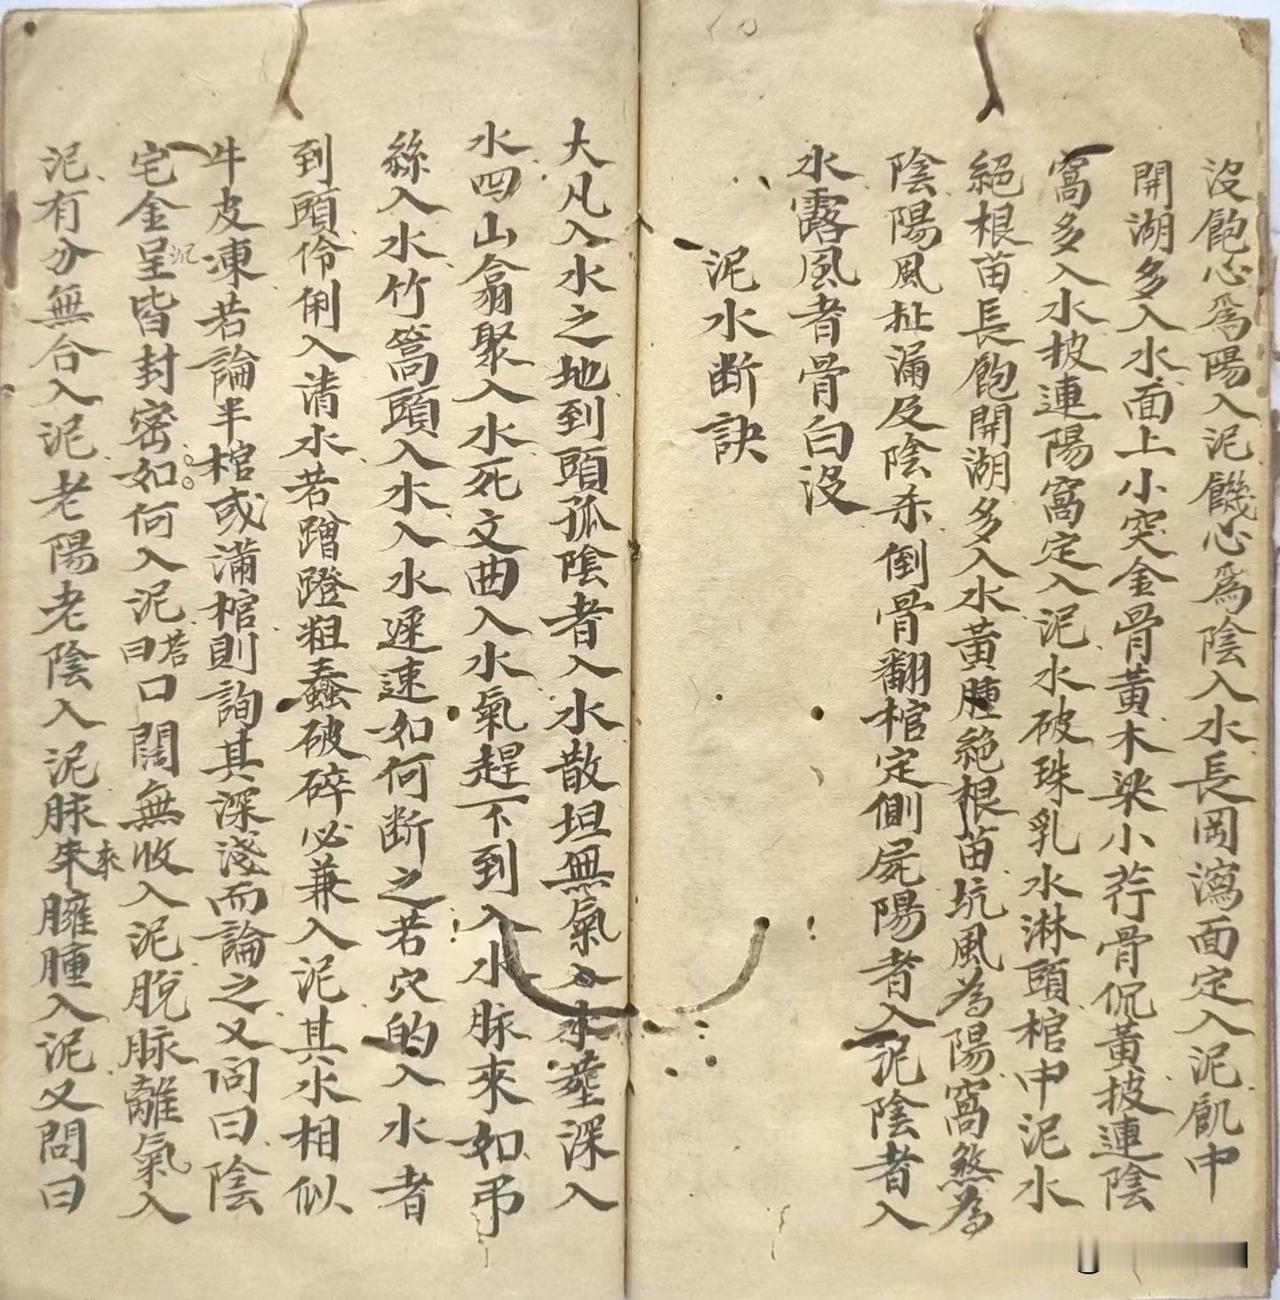 沒飽心為陽入泥饑心為陰入水長岡瀉面定入泥飢中
開湖多入水面上小突金骨黃木梁小荇骨侃黃披連陰
窩多入水披連陽窩定入泥水破珠乳水淋頭棺中泥水
絕根苗長飽開湖多入水黃腫絕根苗坑風為陽窩煞為
陰陽風扯漏及陰杀倒骨翻棺定側屍陽者入泥陰者入
水露風者骨白沒
泥水断訣
大凡入水之地到頭孤陰者入水散坦無氣入水壟深入
水四山翕聚入水死文曲入水氣趕不到入水脉來如弔
絲入水竹篙頭入水入水遲速如何断之若穴的入水者
到頭伶俐入清水若蹭蹬粗蠢破碎必兼入泥其水相似
牛皮凍若論半棺或滿棺則詢其深淺而論之又问曰陰
宅金呈泥皆封密如何入泥曰若口闊無收入泥脫脉離氣入
泥有分無合入泥老陽老陰入泥脉来來臃腫入泥又問曰